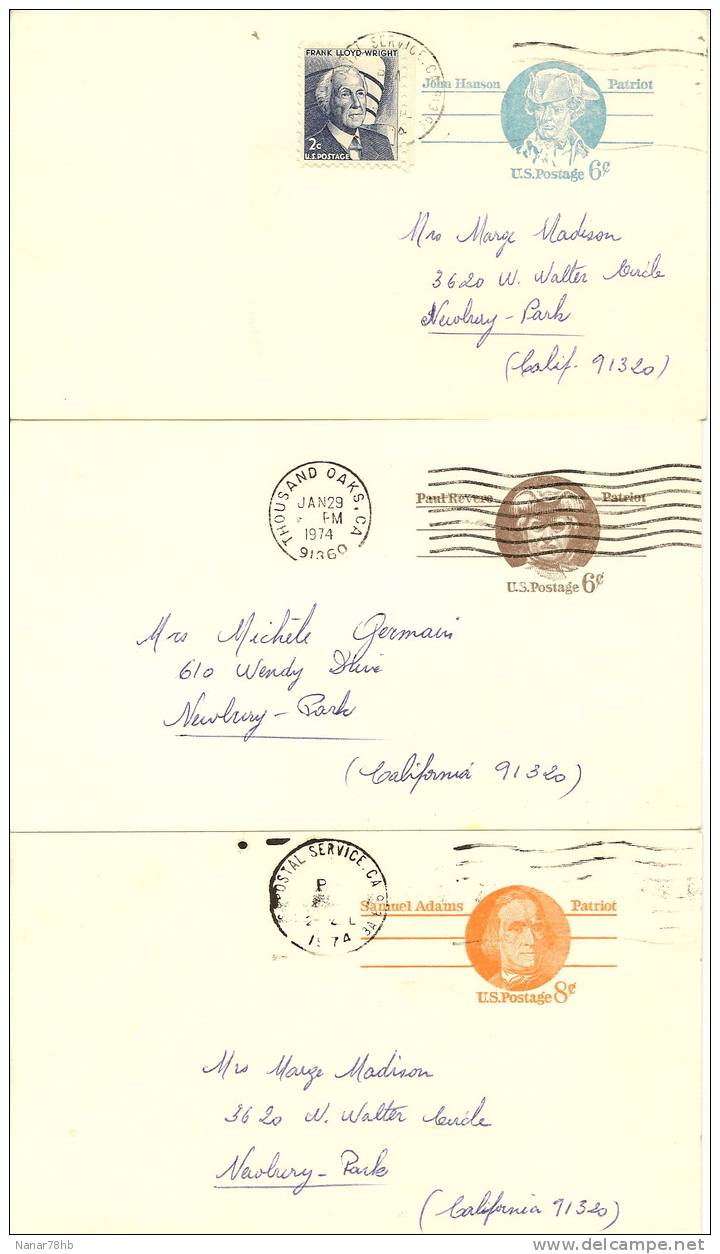 FRANK LLOYD-WRIGHT
2c
U.S.POSTAGE
POSTAL SERVICE, CA
John Hanson Patriot
U.S.Postage 6¢
Mrs Marge Madison
3620 W. Walter Circle
Newbury-Park
(Calif. 91320)
THOUSAND OAKS, CA
JAN29
PM
1974
91360
Paul Revere Patriot
U.S.Postage 6¢
Mrs Michèle Germain
610 Wendy Drive
Newbury-Park
(California 91320)
POSTAL SERVICE, CA
P
1974
Samuel Adams Patriot
U.S.Postage 8¢
Mrs Marge Madison
3620 N. Walter Circle
Newbury-Park
(California 91320)
Nanar78hb
delcampe.net